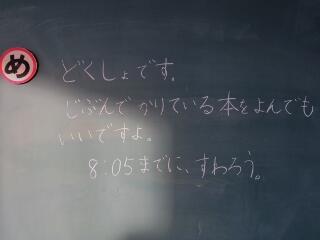 め
どくしょです。
じぶんで かりている本をよんでも
いいですよ。
8:05までに、すわろう。